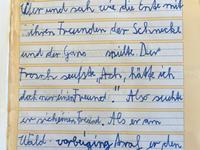 Ufer und sah wie die Ente mit
ihren Freunden der Schnecke
und der Gans spielte. Der
Frosch seufzte „Ach, hätte ich
doch nur einen Freund." Also suchte
er sich einen Freund. Als er am
Wald traf er den